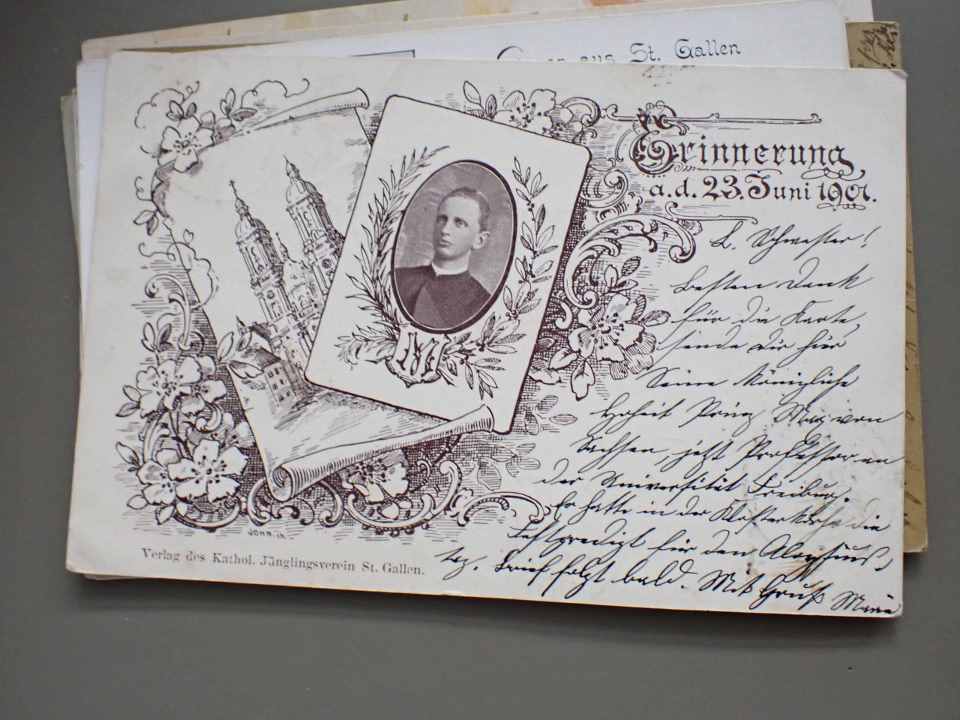 aus St. Gallen
Erinnerung
a. d. 23. Juni 1901.
L. Schwester!
Besten Dank
für die Karte,
sende Dir hier
Seine Königliche
Hoheit Prinz Max von
Sachsen, jetzt Professor an
der Universität Freiburg.
Er hatte in der Klosterkirche die
Festpredigt für den Aloysius
Brief folgt bald. Mit Gruß Marie
JOHN. IR.
Verlag des Kathol. Jünglingsverein St. Gallen.